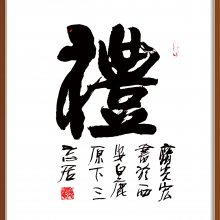 禮
光宏
書於西
安白鹿
原下三
居